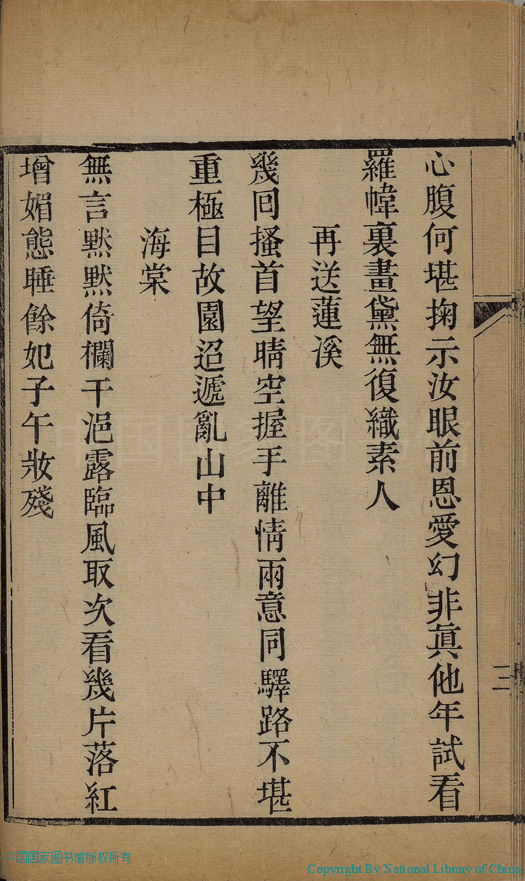 心腹何堪掬示汝眼前恩愛幻非眞他年試看
羅幃裏畫黛無復織素人
再送蓮溪
幾回搔首望晴空握手離情兩意同驛路不堪
重極目故園迢遞亂山中
海棠
無言默默倚欄干浥露臨風取次看幾片落紅
增媚態睡餘妃子午妝殘
三
中国国家图书馆版权所有
Copyright By National Library of China